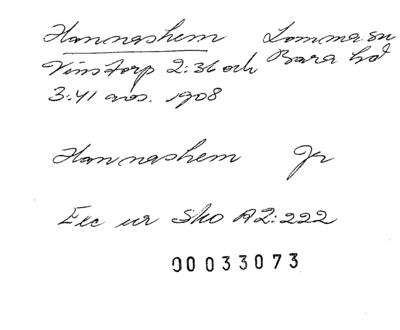 Hannashem Lomma sn
Vinstorp 2:36 och Bara hd
3:41 avs. 1908
Hannashem Jr
Exc ur Sko A2:222
00033073